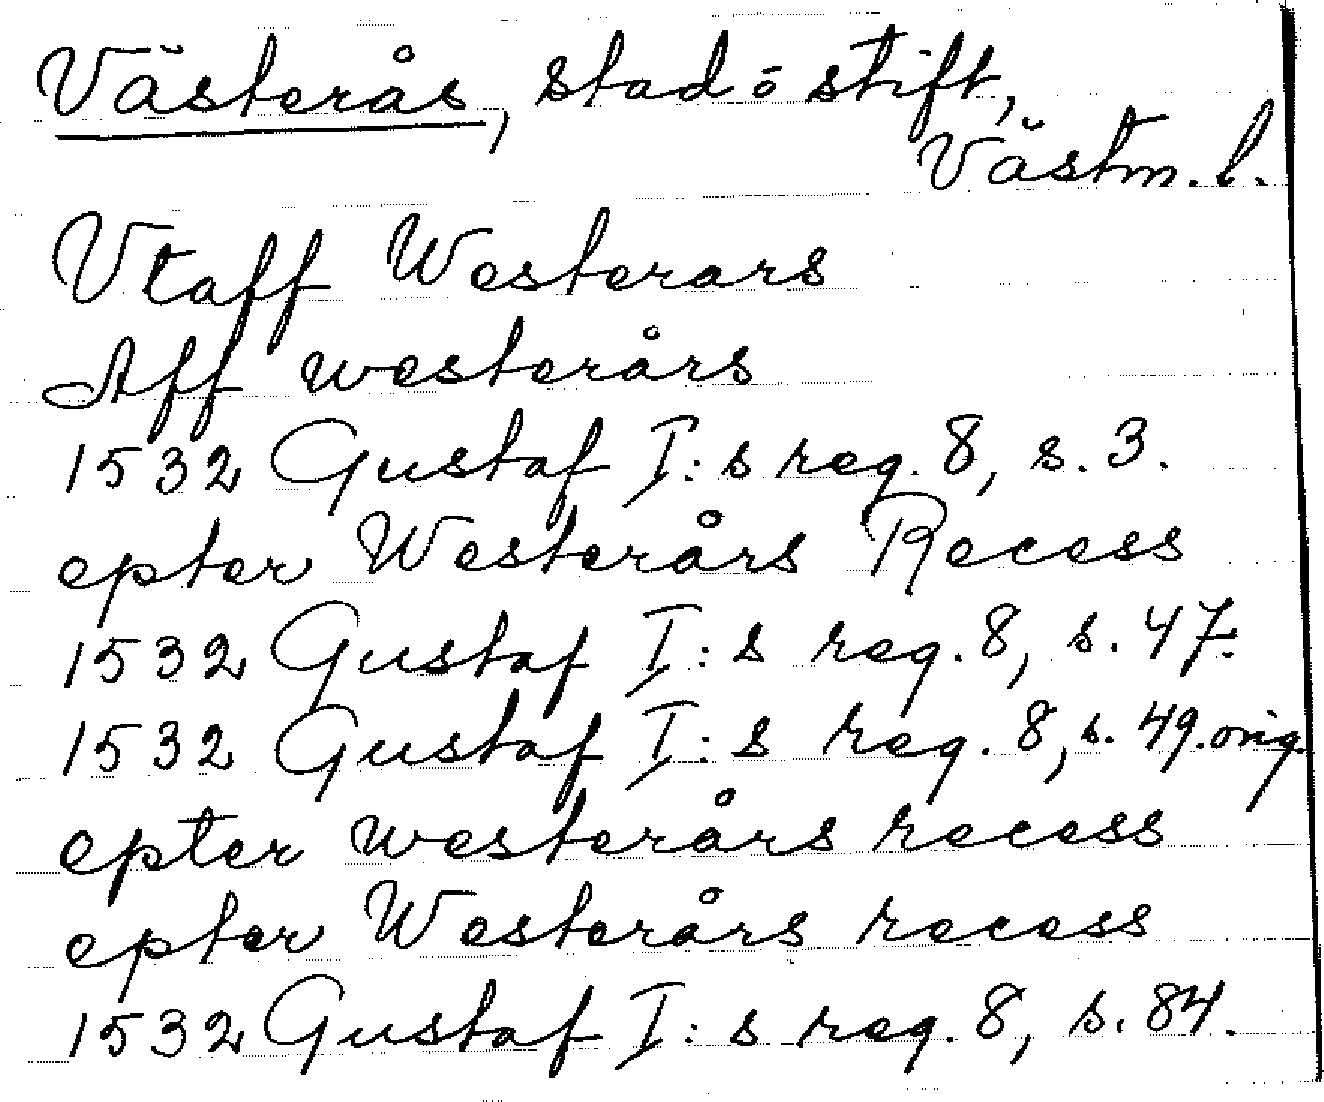 Västerås, stad ō stift,
Västm. l.
Vtaff Westerars
Aff westerårs
1532 Gustaf I:s reg. 8, s. 3.
epter Westerårs Recess
1532 Gustaf I:s reg. 8, s. 47.
1532 Gustaf I:s reg. 8, s. 49. orig
epter westerårs recess
epter Westerårs recess
1532 Gustaf I:s reg. 8, s. 84.